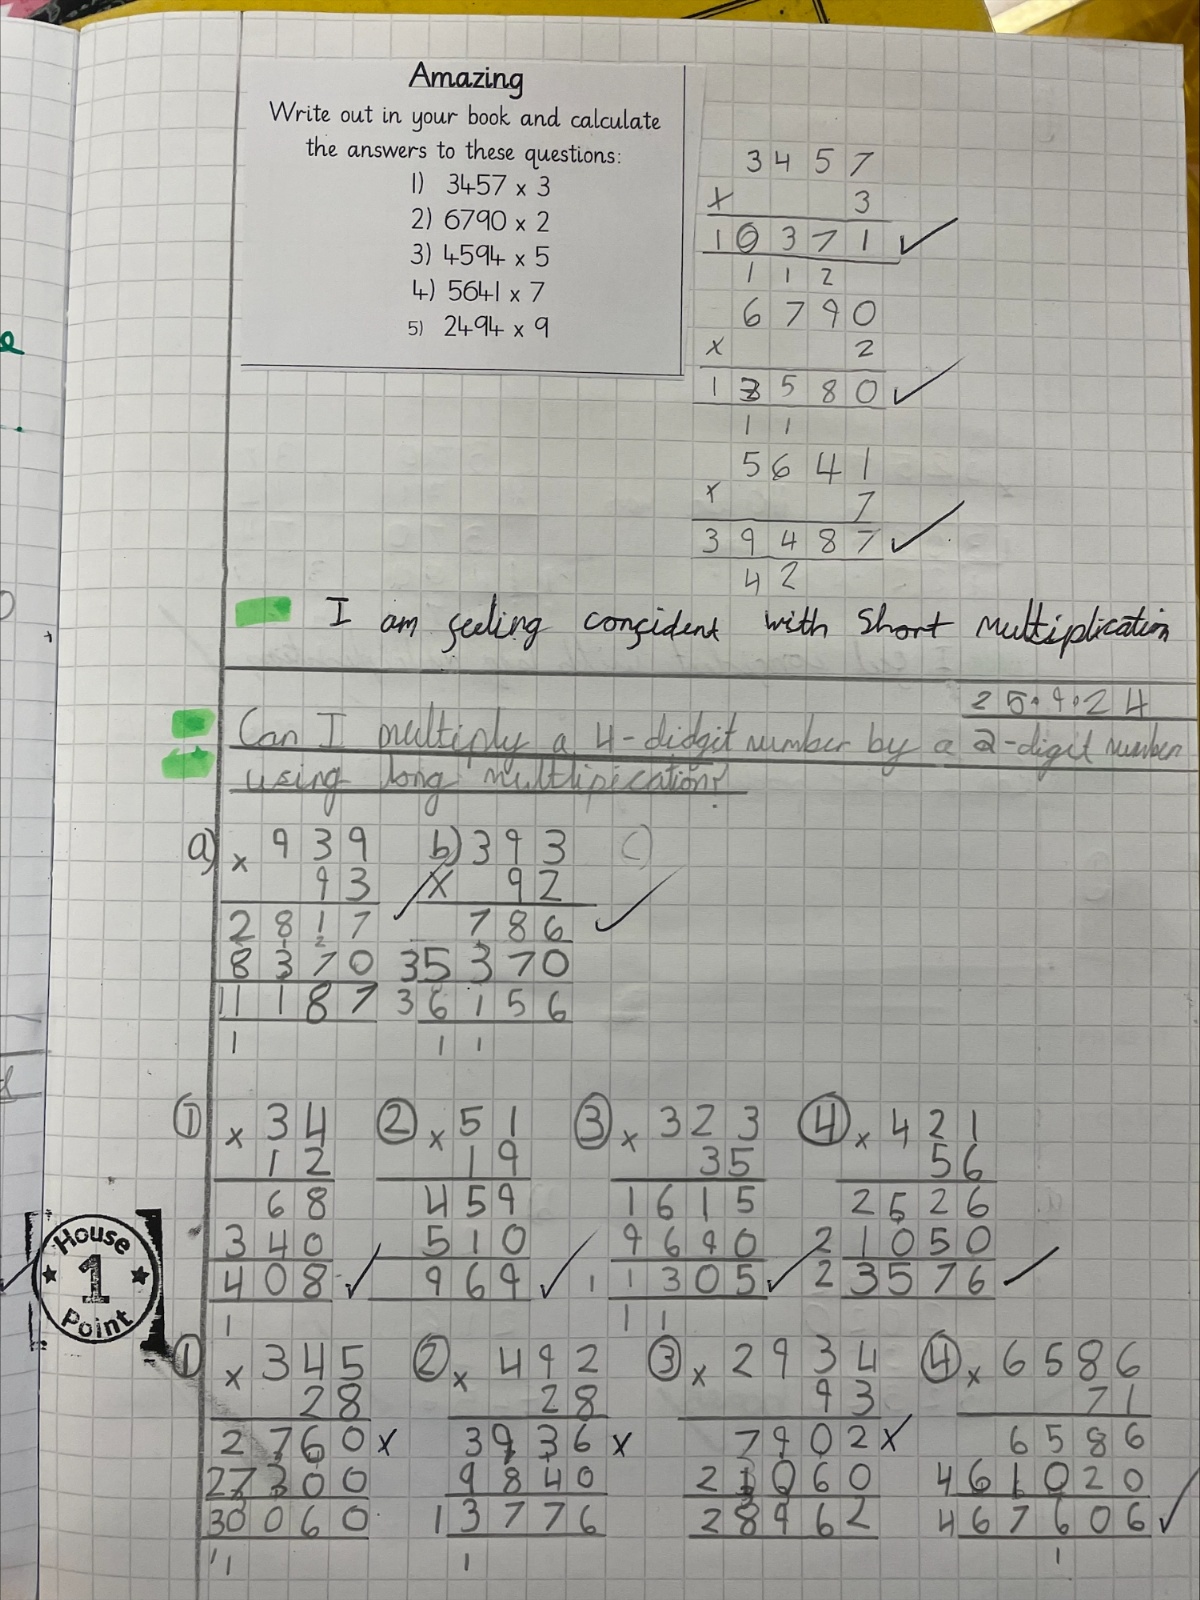 Amazing
Write out in your book and calculate
the answers to these questions:
1) 3457 x 3
2) 6790 x 2
3) 4594 x 5
4) 5641 x 7
5) 2494 x 9
3 4 5 7
x 3
1 0 3 7 1 ✓
1 1 2
6 7 9 0
x 2
1 3 5 8 0 ✓
1 1
5 6 4 1
x 7
3 9 4 8 7 ✓
4 2
I am feeling confident with Short multiplication
25.9.24
Can I multiply a 4-didgit number by a 2-digit number
using long multlipication?
a) x 939 b) 393 c)
93 ✓ x 92
2817 786 ✓
2
8370 35370
11187 36156
1 1 1
① x 34 ② x 51 ③ x 323 ④ x 421
12 19 35 56
68 459 1615 2526
340 510 9690 21050
408 ✓ 969 ✓ 11305 ✓ 23576 ✓
1 1 1
House
1
Point
① x 345 ② x 492 ③ x 2934 ④ x 6586
28 28 93 71
2760 x 3936 x 7902 x 6586
9840 461020
30060 13776 28962 467606 ✓
1 1 1 1